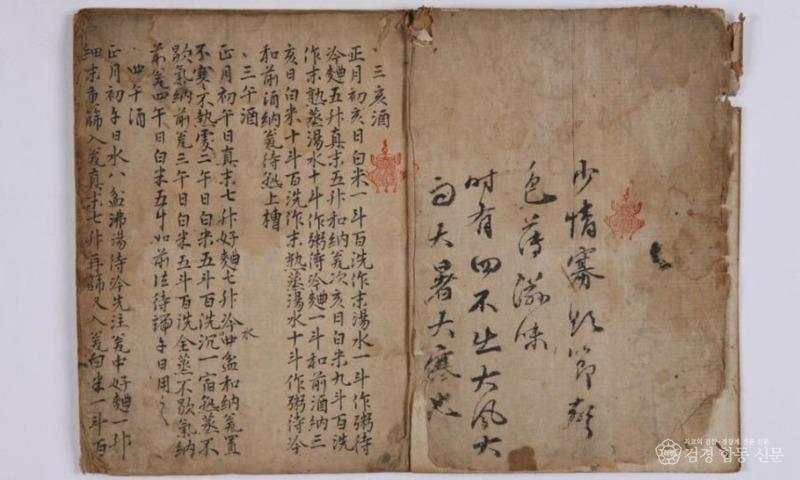 少情寡欲節聲
色薄滋味
時有四不出大風大
雨大暑大寒也
三亥酒
正月初亥日白米一斗百洗作末湯水一斗作粥待
冷麯五升真末五升和納瓮次亥日白米九斗百洗
作末熟蒸湯水十斗作粥待冷麯一斗和前酒納三
亥日白米十斗百洗作末熟蒸湯水十斗作粥待冷
和前酒納瓮待熟上槽
三午酒
正月初午日真末七升好麯七升冷水四盆和納瓮置
不寒不熱處二午日白米五斗百洗沉一宿熟蒸不
歇氣納前瓮三午日白米五斗百洗全蒸不歇氣納
前瓮四午日白米五斗如前法待端午日用之
四午酒
正月初午日水八盆沸湯待冷先注瓮中好麯一升
細末重篩入瓮真末七升再篩又入瓮白米一斗百
검경 합동 신문